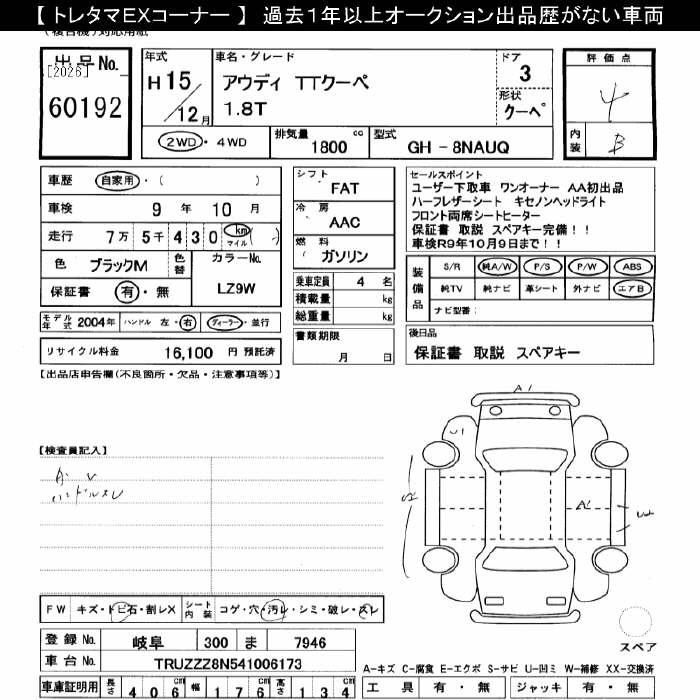 【 トレタマEXコーナー 】 過去1年以上オークション出品歴がない車両
出品No.
[2026]
60192
年式
H15/12月
車名・グレード
アウディ TTクーペ
1.8T
ドア
3
形状
クーペ
評価点
4
内装
B
2WD・4WD
排気量
1800 cc
型式
GH - 8NAUQ
車歴 自家用・( )
車検 9年 10月
走行 7万5千430 km マイル ( )
色 ブラックM
色替
カラーNo.
LZ9W
保証書 有・無
モデル年式 2004年 ハンドル 左・右 ディーラー・並行
リサイクル料金 16,100 円 預託済
シフト
FAT
冷房
AAC
燃料
ガソリン
乗車定員 4 名
積載量 kg
総重量 kg
書類期限
月 日
セールスポイント
ユーザー下取車 ワンオーナー AA初出品
ハーフレザーシート キセノンヘッドライト
フロント両席シートヒーター
保証書 取説 スペアキー完備!!
車検R9年10月9日まで!!
装備品
S/R 純A/W P/S P/W ABS
純TV 純ナビ 革シート 外ナビ エアB
ナビ型番:
後日品
保証書 取説 スペアキー
【出品店申告欄(不良箇所・欠品・注意事項等)】
【検査員記入】
A・U
ハンドルスレ
A1
U1
A2
FW キズ・トビ石・割レX
シート内装 コゲ・穴・汚レ・シミ・破レ・スレ
登録No. 岐阜 300 ま 7946
車台No. TRUZZZ8N541006173
車庫証明用 長さ 404cm 幅 176cm 高さ 134cm
スペア
A-キズ C-腐食 E-エクボ S-サビ U-凹ミ W-補修 XX-交換済
工具 有・無 ジャッキ 有・無